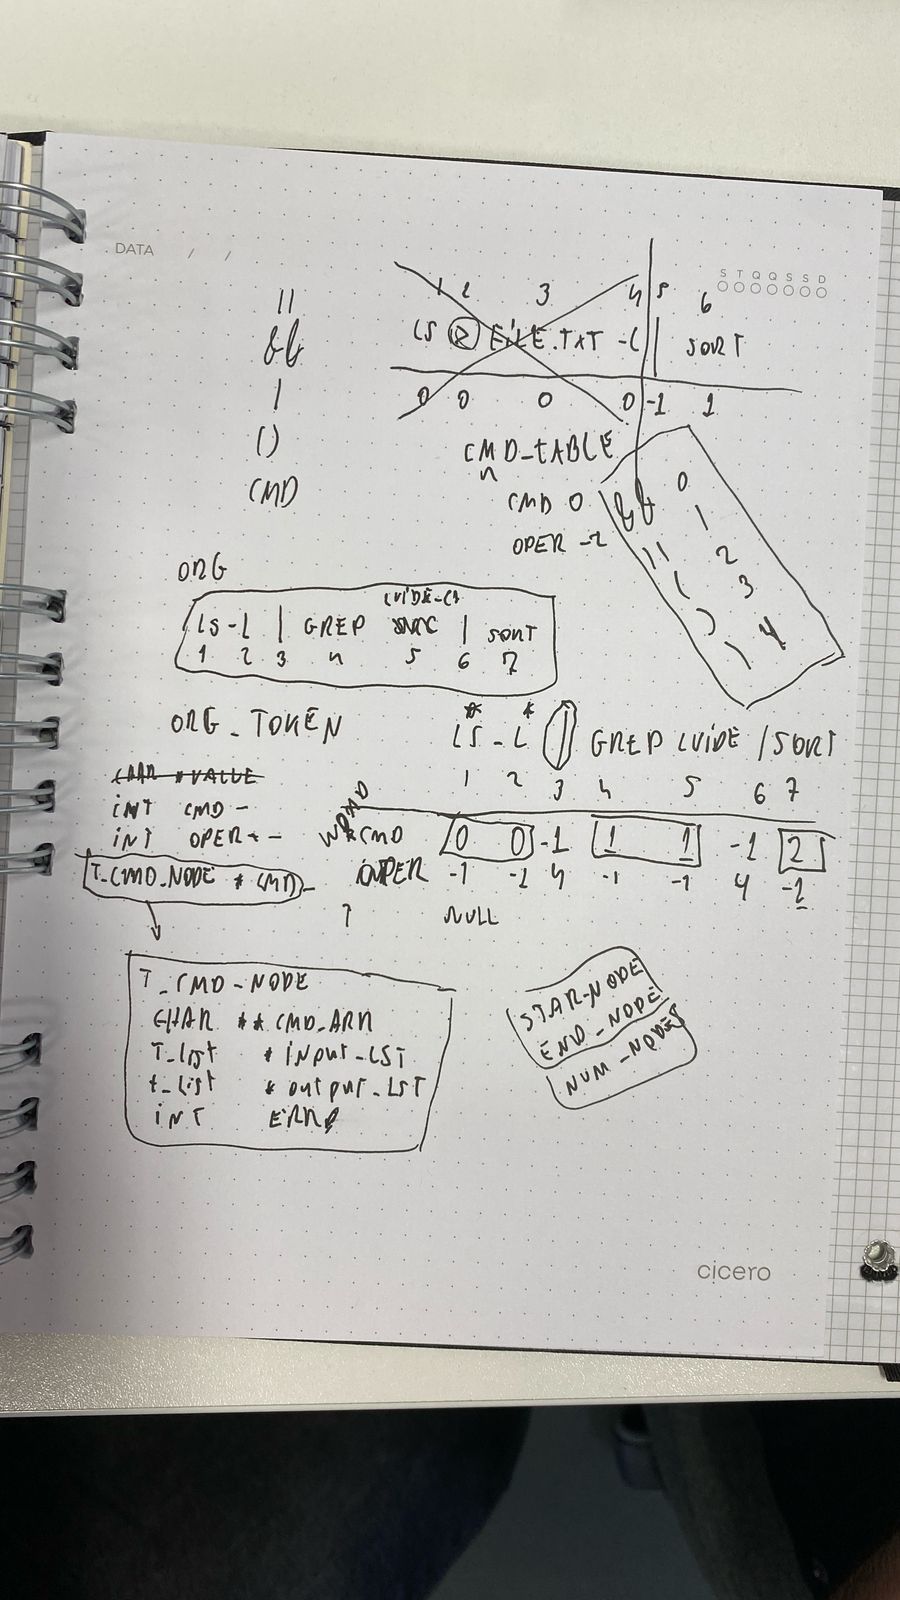 DATA / /
S T Q Q S S D
||
&&
|
()
CMD
1 2 3 4 5 6
LS FILE.TXT -L | SORT
0 0 0 0 -1 1
CMD_TABLE
CMD 0
OPER -2
&& 0
|| 1
( 2
) 3
| 4
ORG
LS -L | GREP | SORT
1 2 3 4 5 6 7
ORG_TOKEN
* *
LS -L | GREP LUIDE | SORT
1 2 3 4 5 6 7
CHAR *VALUE
INT CMD -
INT OPER
T_CMD_NODE * CMD -
CMD 0 0 -1 1 1 -1 2
OPER -1 -2 4 -1 -1 4 -2
NULL
T_CMD_NODE
CHAR ** CMD_ARR
T_list * INPUT_LST
t_list * OUTPUT_LST
INT ERR
STAR_NODE
END_NODE
NUM_NODES
cicero